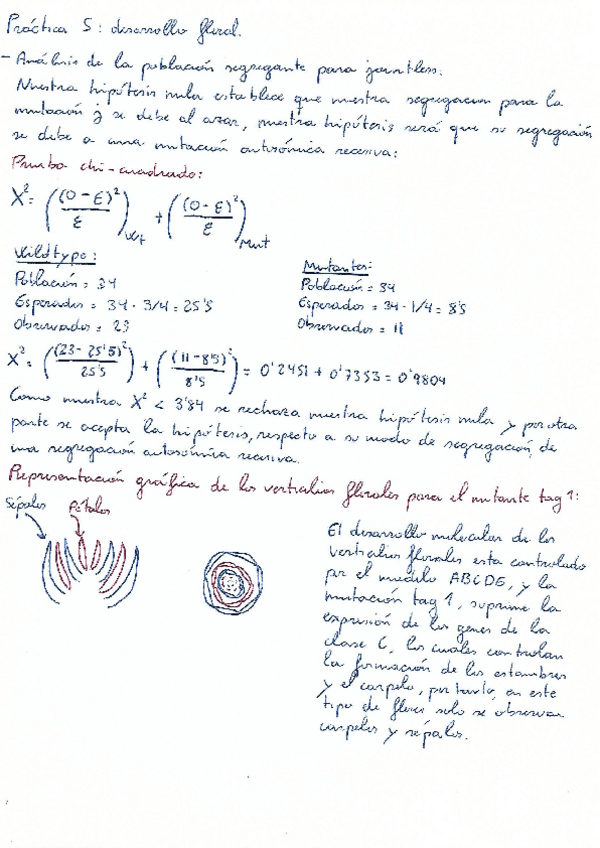 Práctica 5: desarrollo floral.
- Análisis de la población segregante para jointless.
Nuestra hipótesis nula establece que nuestra segregación para la
mutación j se debe al azar, nuestra hipótesis será que su segregación
se debe a una mutación autosómica recesiva:
Prueba chi-cuadrado:
X² = ((O - E)²/E)Wt + ((O - E)²/E)Mut
Wildtype:
Población = 34
Esperados = 34 · 3/4 = 25'5
Observados = 23
Mutantes:
Población = 34
Esperados = 34 · 1/4 = 8'5
Observados = 11
X² = ((23 - 25'5)²/25'5) + ((11 - 8'5)²/8'5) = 0'2451 + 0'7353 = 0'9804
Como nuestra X² < 3'84 se rechaza nuestra hipótesis nula y por otra
parte se acepta la hipótesis, respecto a su modo de segregación, de
una segregación autosómica recesiva.
Representación gráfica de los verticilios florales para el mutante tag 1:
Sépalos Pétalos
El desarrollo molecular de los
verticilios florales esta controlado
por el modelo ABCDE, y la
mutación tag 1, suprime la
expresión de los genes de la
clase C, los cuales controlan
la formación de los estambres
y el carpelo, por tanto, en este
tipo de flores solo se observan
carpelos y sépalos.